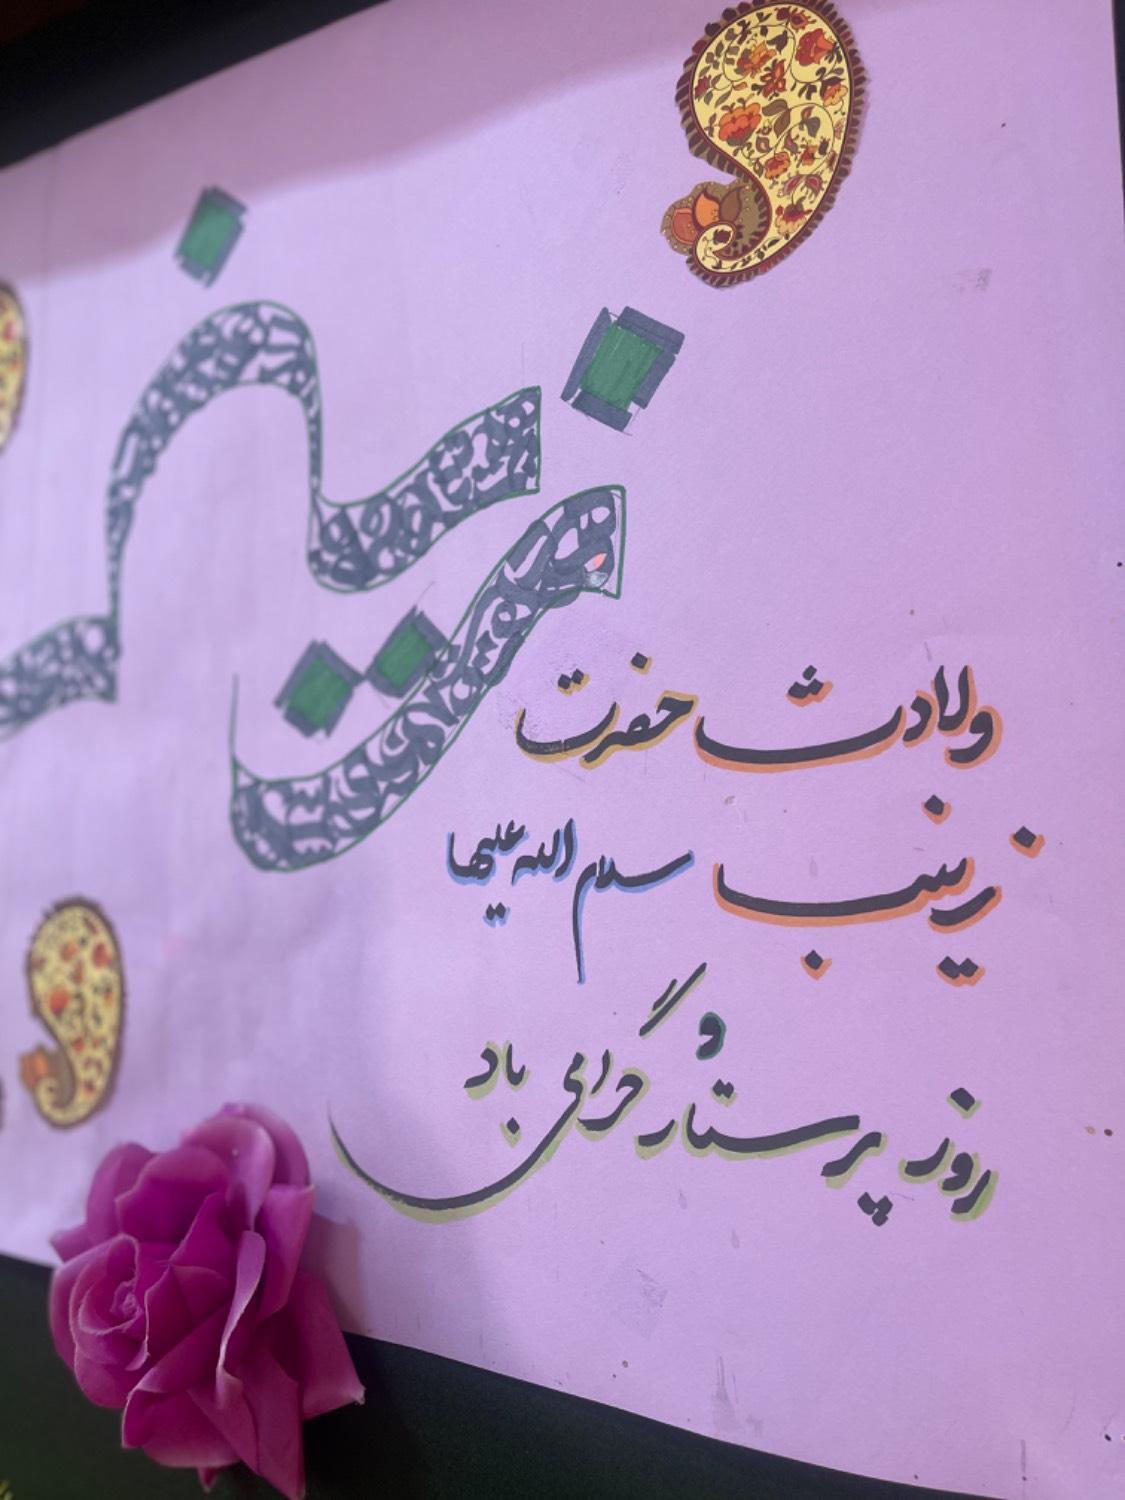 زینب
ولادت حضرت
زینب سلام الله علیها
و
روز پرستار گرامی باد